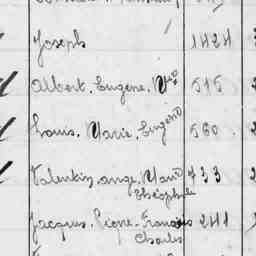 Joseph 1424
Albert, Eugène, 515
Louis, Marie, Eugène 560
Valentin, ange, Marie 433
Théophile
Jacques, Pierre, François 241
Charles